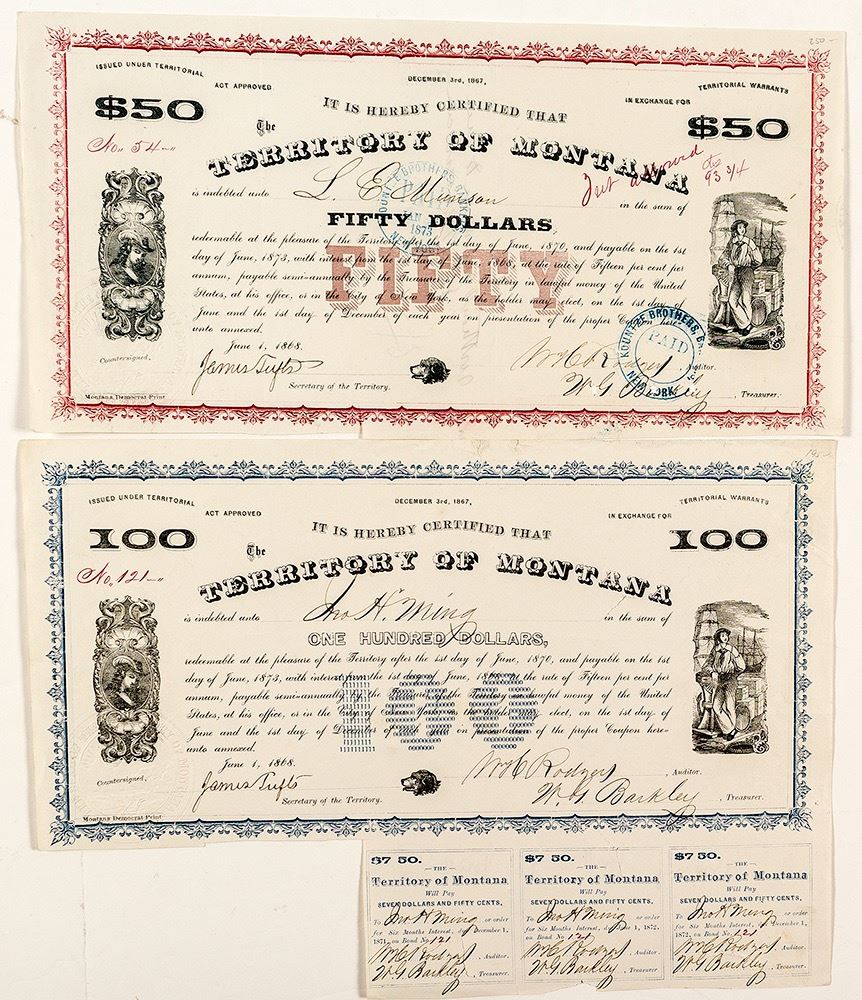 250-
ISSUED UNDER TERRITORIAL ACT APPROVED DECEMBER 3rd, 1867, IN EXCHANGE FOR TERRITORIAL WARRANTS
$50 IT IS HEREBY CERTIFIED THAT $50
No. 54
The
TERRITORY OF MONTANA
93 3/4
is indebted unto L. E. Munson in the sum of
FIFTY DOLLARS,
redeemable at the pleasure of the Territory after the 1st day of June, 1870, and payable on the 1st
day of June, 1873, with interest from the 1st day of June 1868, at the rate of Fifteen per cent per
annum, payable semi-annually by the Treasurer of the Territory in lawful money of the United
States, at his office, or in the City of New York, as the holder may elect, on the 1st day of
June and the 1st day of December of each year on presentation of the proper Coupon here-
unto annexed.
FIFTY
KOUNTZE BROTHERS, BANKERS
PAID
JAN 1873
NEW YORK
June 1, 1868.
Countersigned,
James Tufts
Secretary of the Territory.
W. C. Rodgers Auditor.
W. G. Barkley, Treasurer.
KOUNTZE BROTHERS, BA
PAID
NEW YORK
Montana Democrat Print
195-
ISSUED UNDER TERRITORIAL ACT APPROVED DECEMBER 3rd, 1867, IN EXCHANGE FOR TERRITORIAL WARRANTS
100 IT IS HEREBY CERTIFIED THAT 100
No. 121
The
TERRITORY OF MONTANA
is indebted unto Jno H. Ming in the sum of
ONE HUNDRED DOLLARS,
redeemable at the pleasure of the Territory after the 1st day of June, 1870, and payable on the 1st
day of June, 1873, with interest from the 1st day of June, 1868, at the rate of Fifteen per cent per
annum, payable semi-annually by the Treasurer of the Territory in lawful money of the United
States, at his office, or in the City of New York, as the holder may elect, on the 1st day of
June and the 1st day of December of each year on presentation of the proper Coupon here-
unto annexed.
100
June 1, 1868.
Countersigned,
James Tufts
Secretary of the Territory.
W. C. Rodgers, Auditor.
W. G. Barkley, Treasurer.
Montana Democrat Print
$7 50.
THE
Territory of Montana
Will Pay
SEVEN DOLLARS AND FIFTY CENTS,
To Jno H Ming or order
for Six Months Interest, due December 1,
1871, on Bond No 121
W. C. Rodgers, Auditor.
W. G. Barkley, Treasurer.
$7 50.
THE
Territory of Montana
Will Pay
SEVEN DOLLARS AND FIFTY CENTS,
To Jno H Ming or order
for Six Months Interest, due June 1, 1872,
on Bond No. 121
W. C. Rodgers, Auditor.
W. G. Barkley, Treasurer.
$7 50.
THE
Territory of Montana
Will Pay
SEVEN DOLLARS AND FIFTY CENTS,
To Jno H Ming or order
for Six Months Interest, due December 1,
1872, on Bond No. 121
W. C. Rodgers, Auditor.
W. G. Barkley, Treasurer.